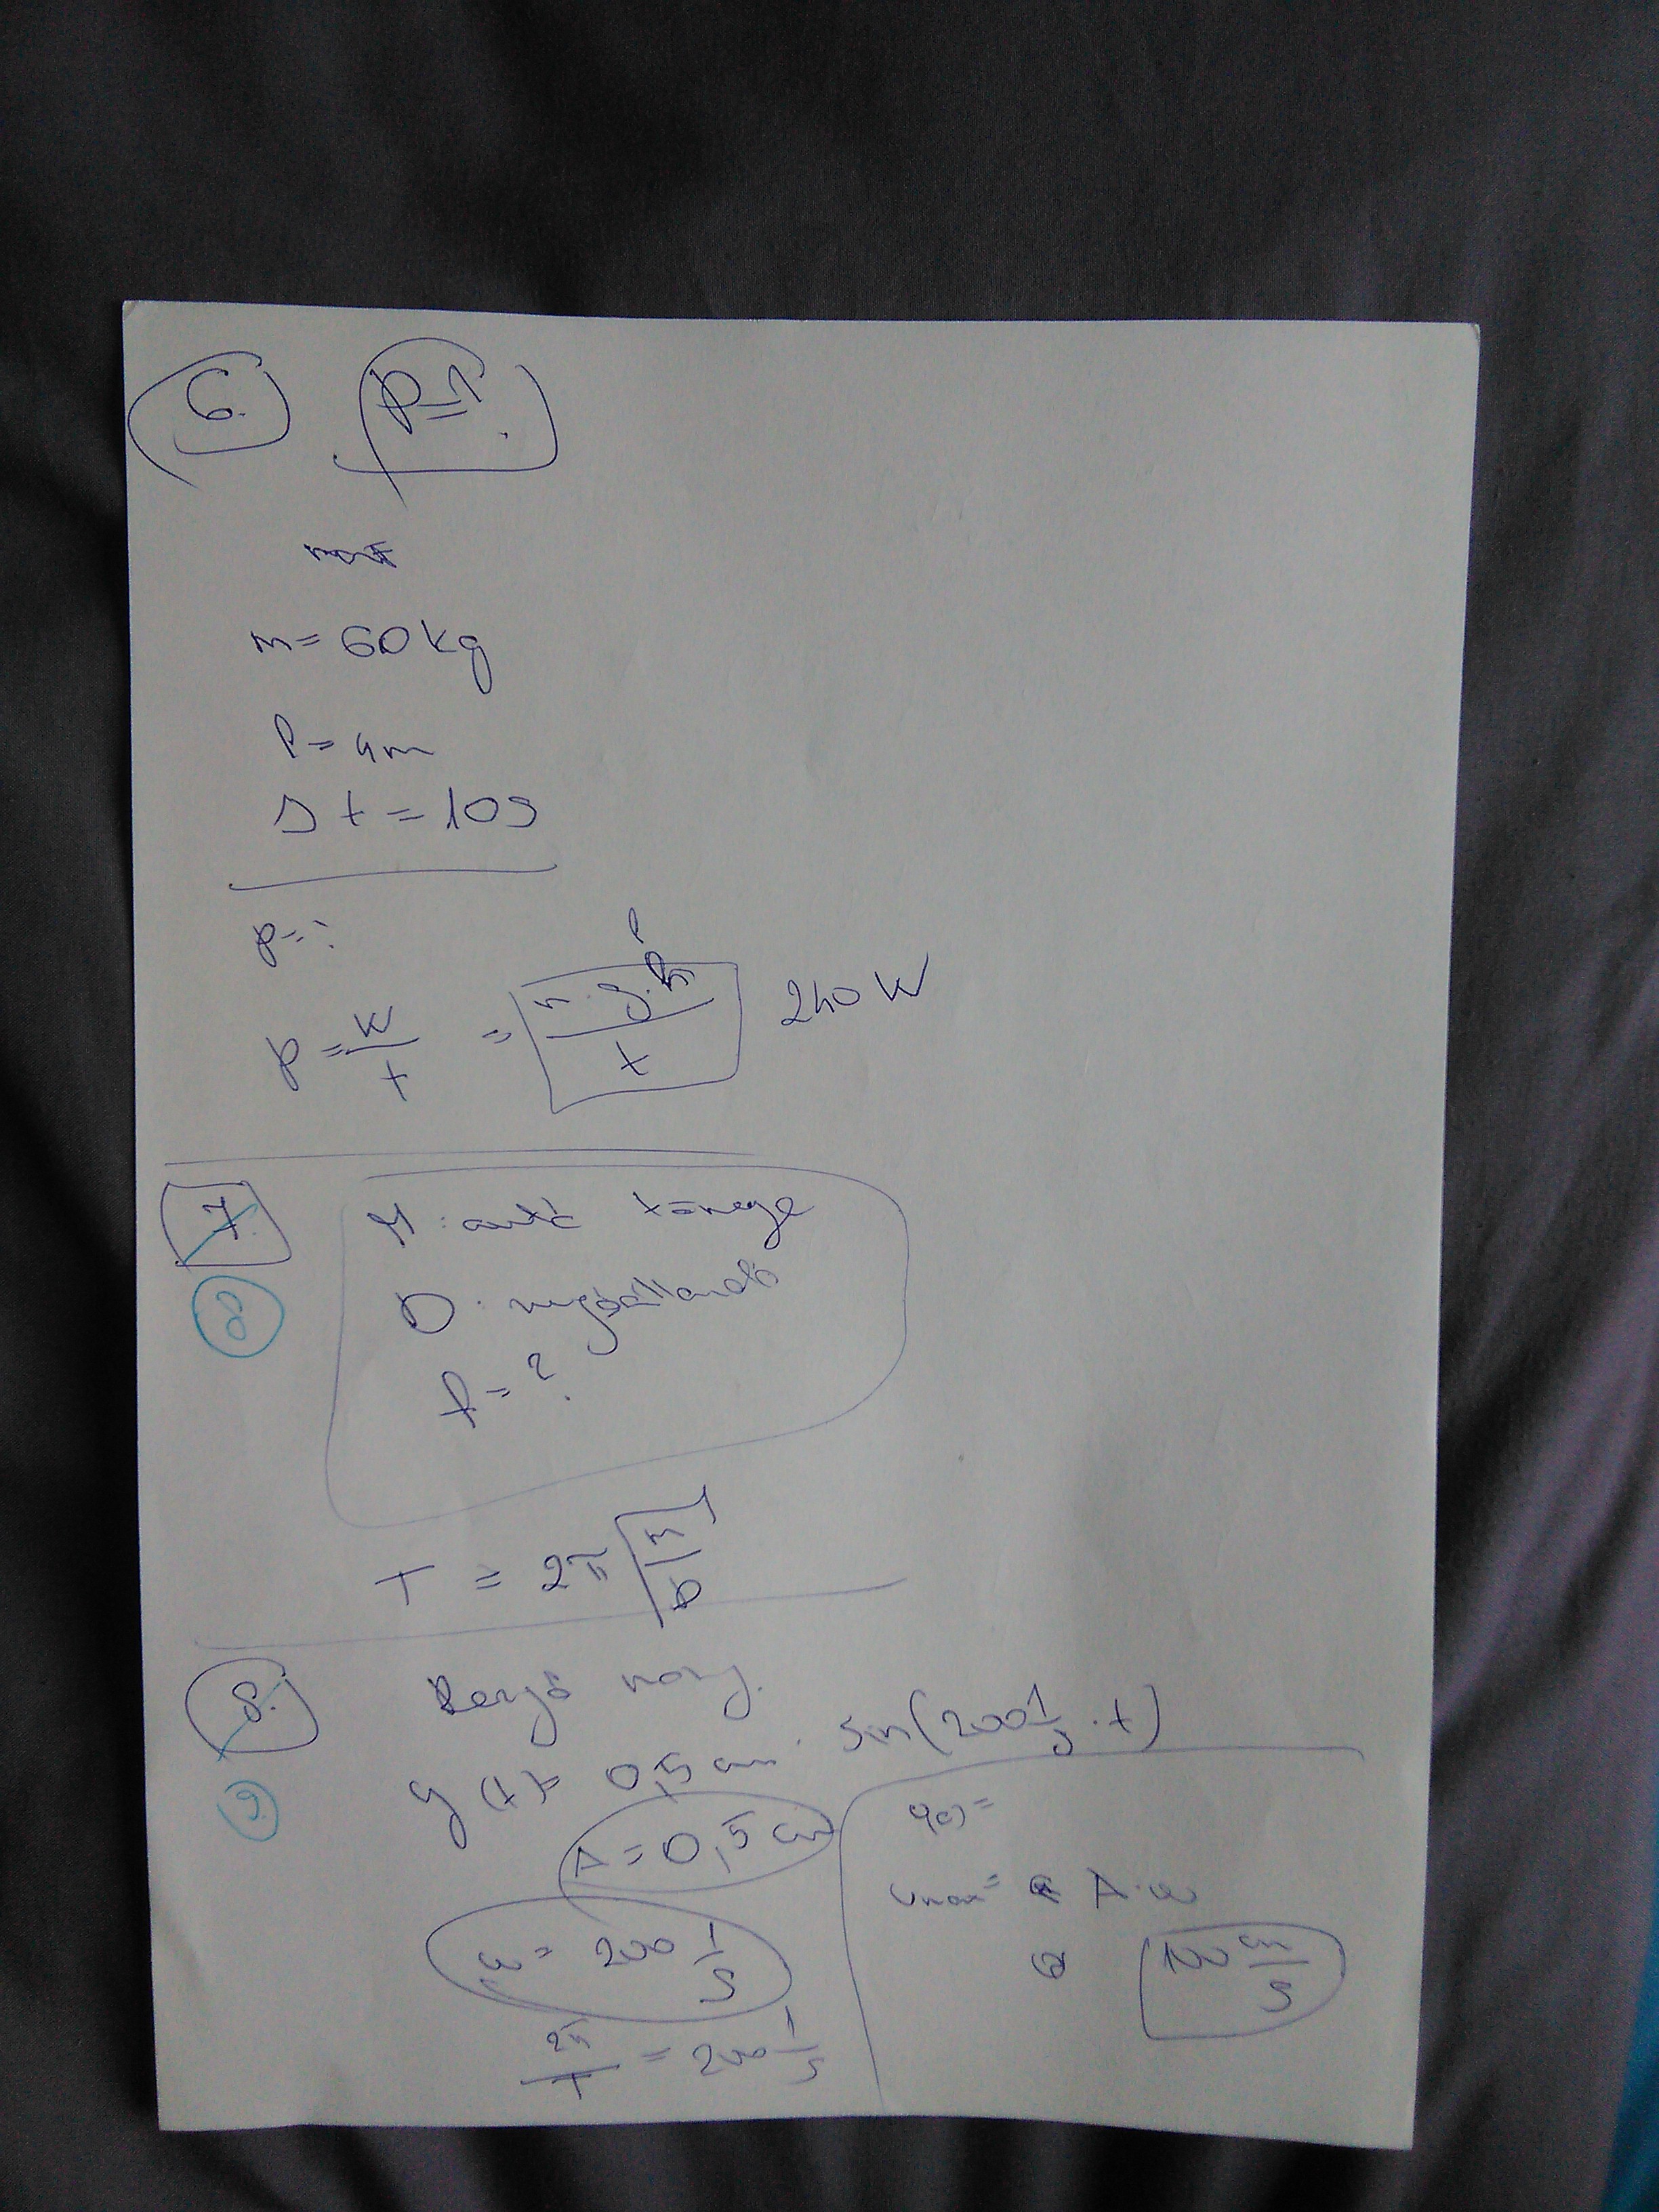 6.
m = 60 kg
l = 4m
Δt = 10s
P = ?
P = W/t = m·g·h/t 240 W
l
7.
8
M: autó tömege
D: rugóállandó
f = ?
T = 2π √(m/D)
8.
9.
Rezgő mozg.
y(t) = 0,5 cm · sin(200 1/s · t)
A = 0,5 cm
ω = 200 1/s
2π/T = 200 1/s
vmax = A·ω
100 cm/s